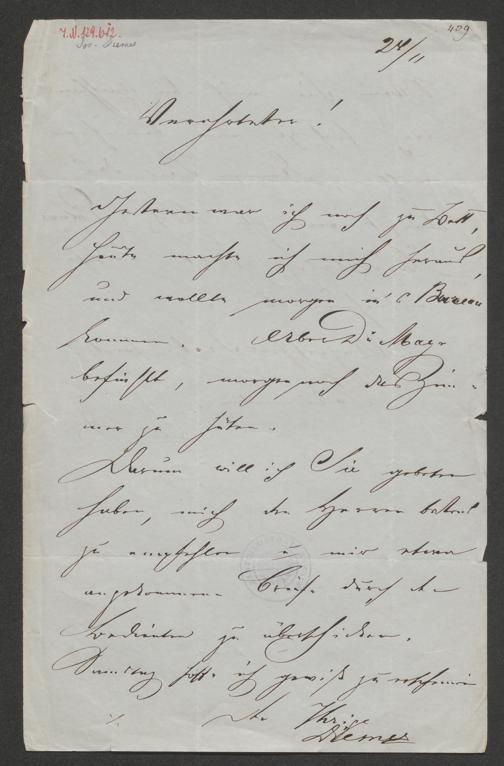 I.N. 129.672.
Jos. Diemer
409
24/11
Verehrtester!
Gestern war ich noch zu Bett,
heute machte ich mich heraus,
und wollte morgen in's Bureau
kommen. Aber Dr Mayr
befiehlt, morgen noch das Zim-
mer zu hüten.
Darum will ich Sie gebeten
haben, mich den Herren
zu empfehlen u mir etwa
angekommene Briefe durch den
Bedienten zu überschicken.
Samstag hoffe ich gewiß zu erscheinen
Der Ihrige
Diemer